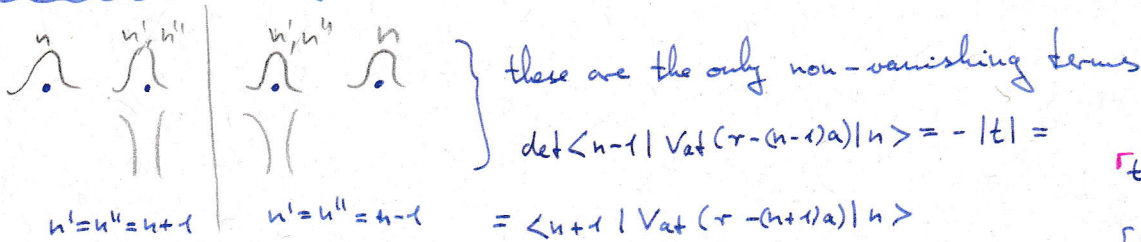 n n', n'' n', n'' n
these are the only non-vanishing terms
det <n-1| Vat (r-(n-1)a)|n> = -|t| =
t
n'=n''=n+1 n'=n''=n-1 = <n+1| Vat (r-(n+1)a)|n>